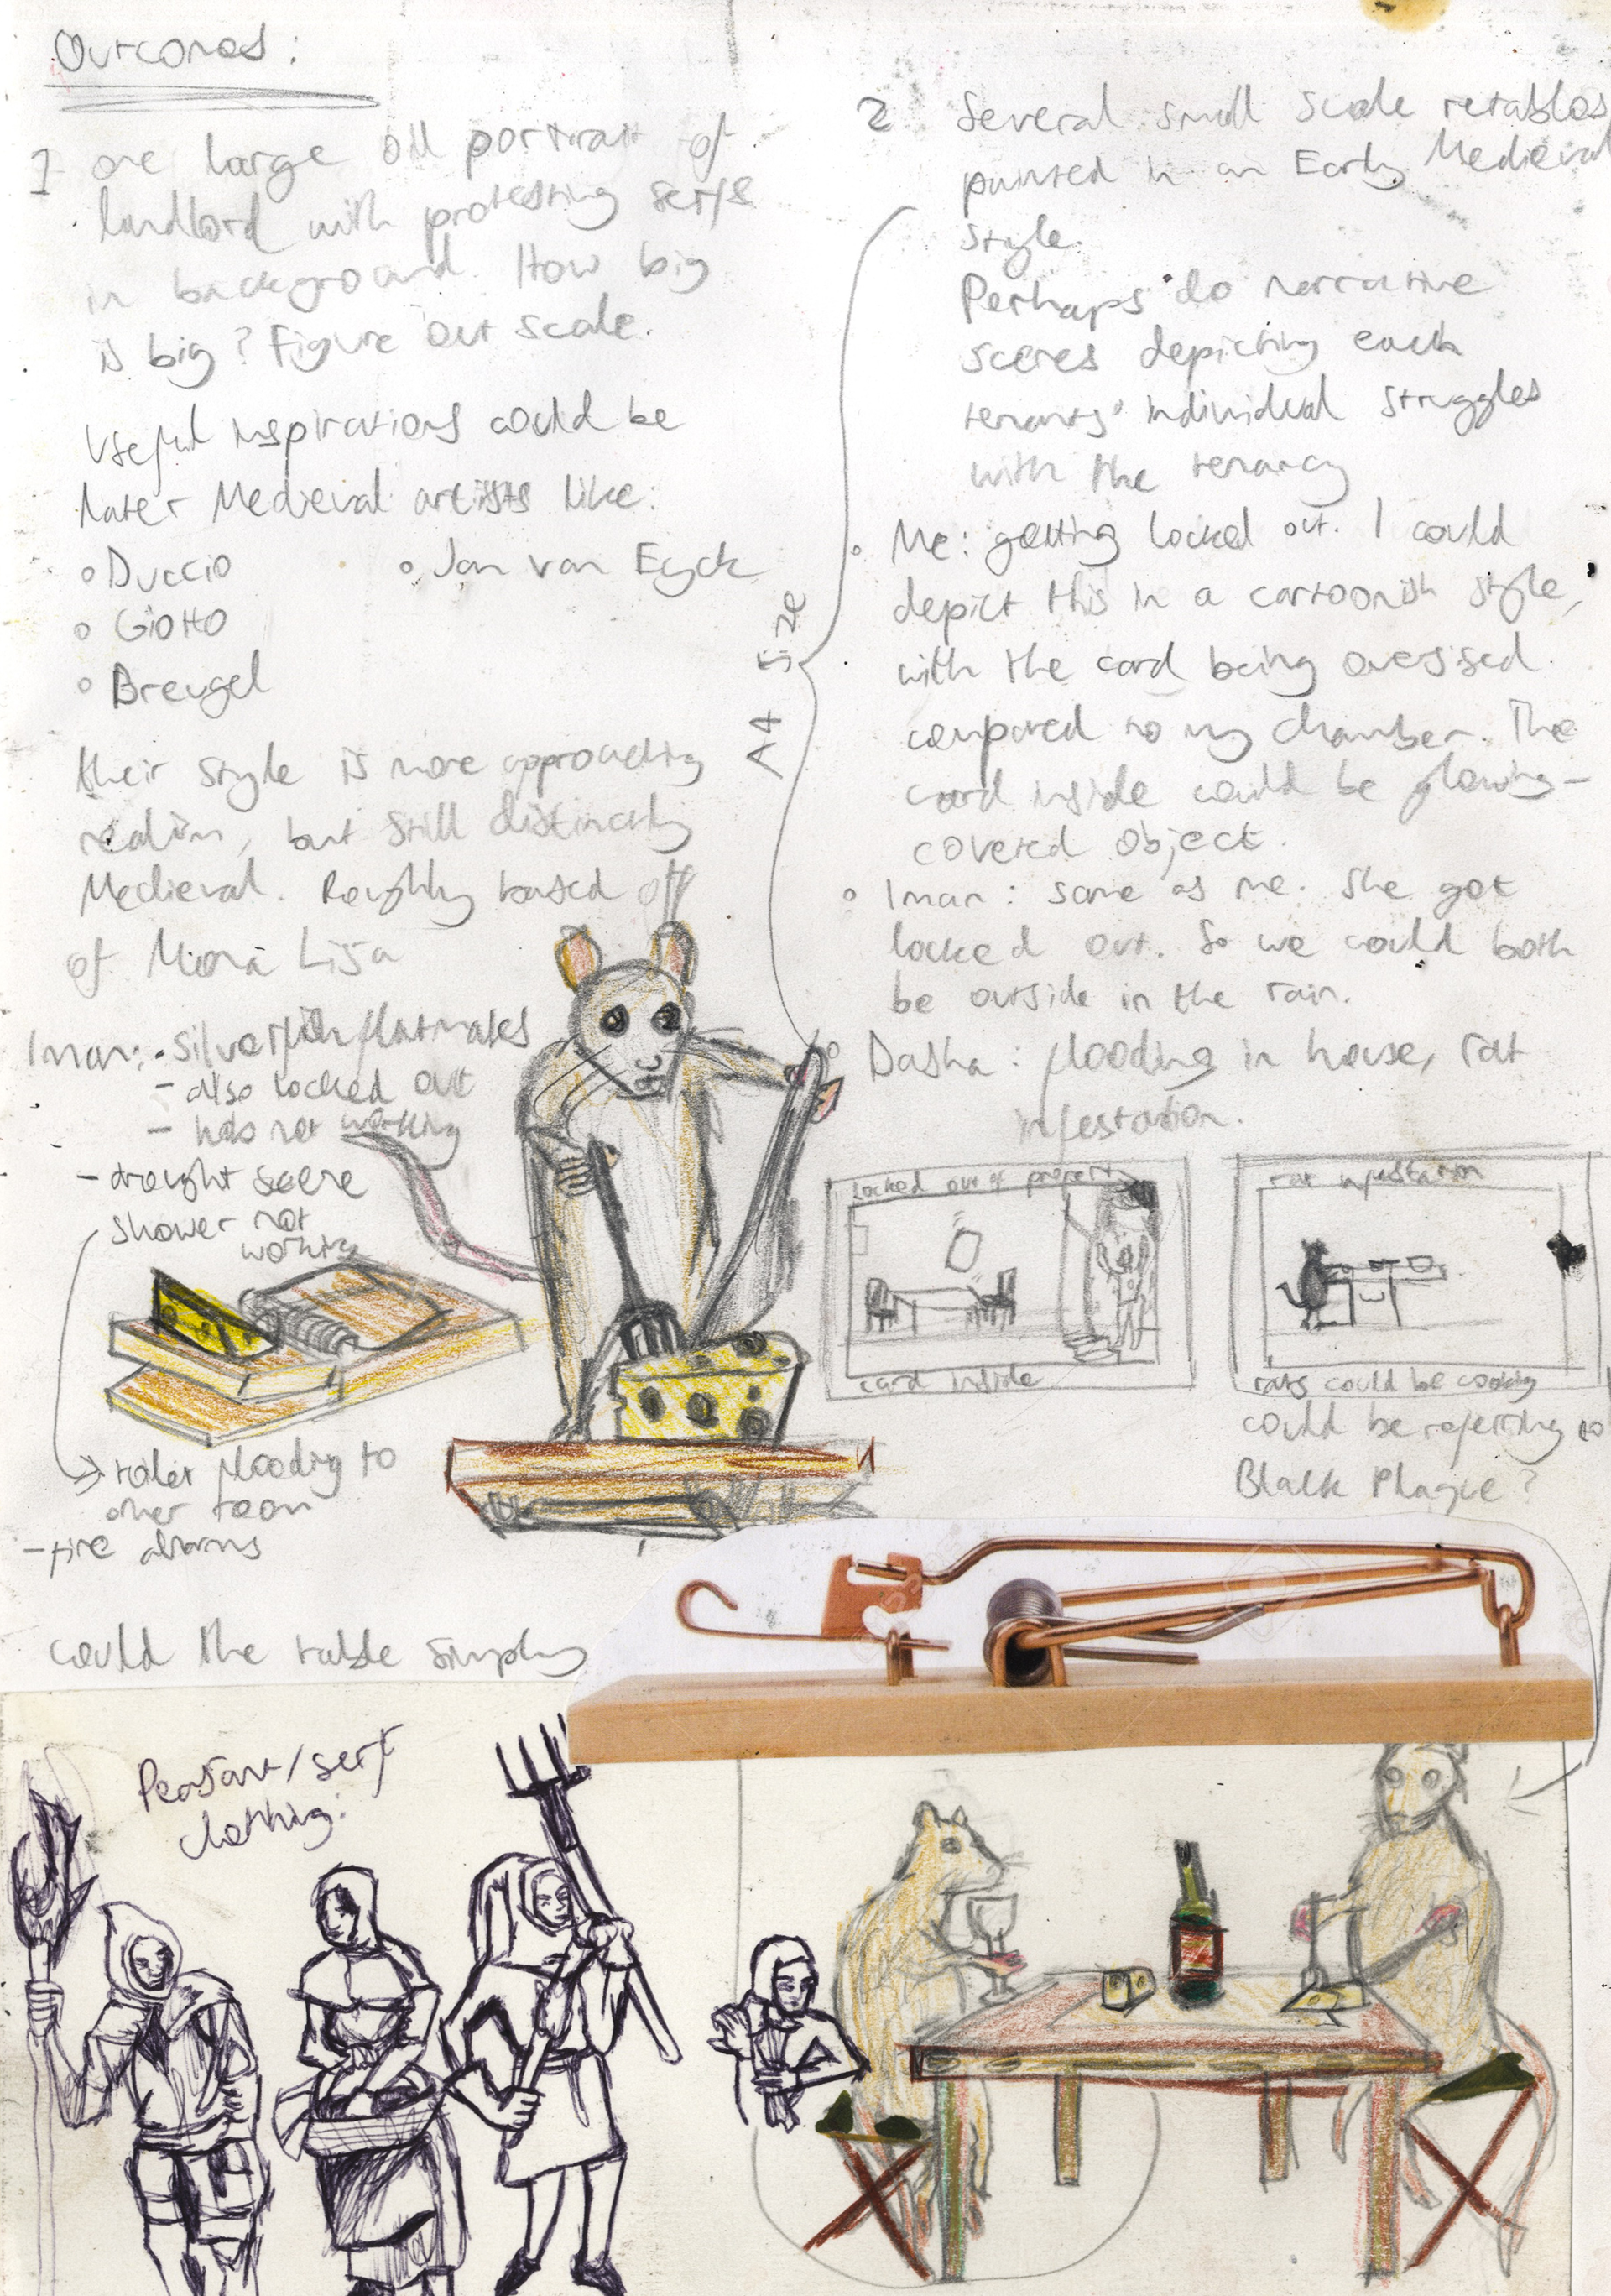 Outcomes:
1 one large oil portrait of
landlord with protesting serfs
in background. How big
is big? Figure out scale.
Useful inspirations could be
later Medieval artists like:
Duccio
Jan van Eyck
Giotto
Breugel
their style is more approaching
realism, but still distinctly
Medieval. Roughly based off
of Mona Lisa
Iman: • Silverfish flatmates
- also locked out
- hob not working
- drought scene
shower not
working
toilet flooding to
other room
- fire alarms
could the table simply
2 Several small scale retablos
painted in an Early Medieval
style.
Perhaps do narrative
scenes depicting each
tenants' individual struggles
with the tenancy
A4 size
Me: getting locked out. I could
depict this in a cartoonish style,
with the card being oversised
compared to my chamber. The
card inside could be glowing-
covered object.
Iman: same as me. She got
locked out. So we could both
be outside in the rain.
Dasha: flooding in house, rat
infestation.
Locked out of property
card inside
rat infestation
rats could be cooking
could be referring to
Black Plague?
Peasant/serf
clothing: